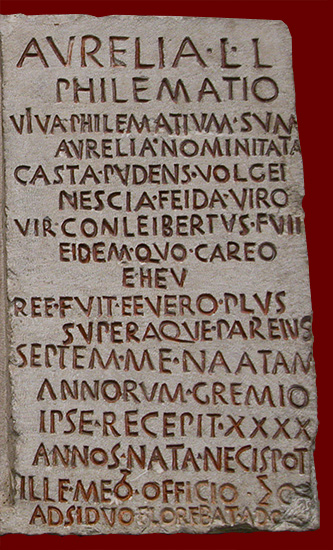 AVRELIA·L·L
PHILEMATIO
VIVA·PHILEMATIVM·SVM
AVRELIA·NOMINITATA
CASTA·PVDENS·VOLGEI
NESCIA·FEIDA·VIRO
VIR CONLEIBERTVS·FVIT
EIDEM·QVO·CAREO
EHEV
REE·FVIT·EE VERO·PLVS
SVPERAQVE·PARENS
SEPTEM·ME·NAATAM
ANNORVM·GREMIO
IPSE·RECEPIT·XXXX
ANNOS·NATA·NECIS·POT
ILLE·MEO·OFFICIO
ADSIDVO FLOREBAT·AD·O